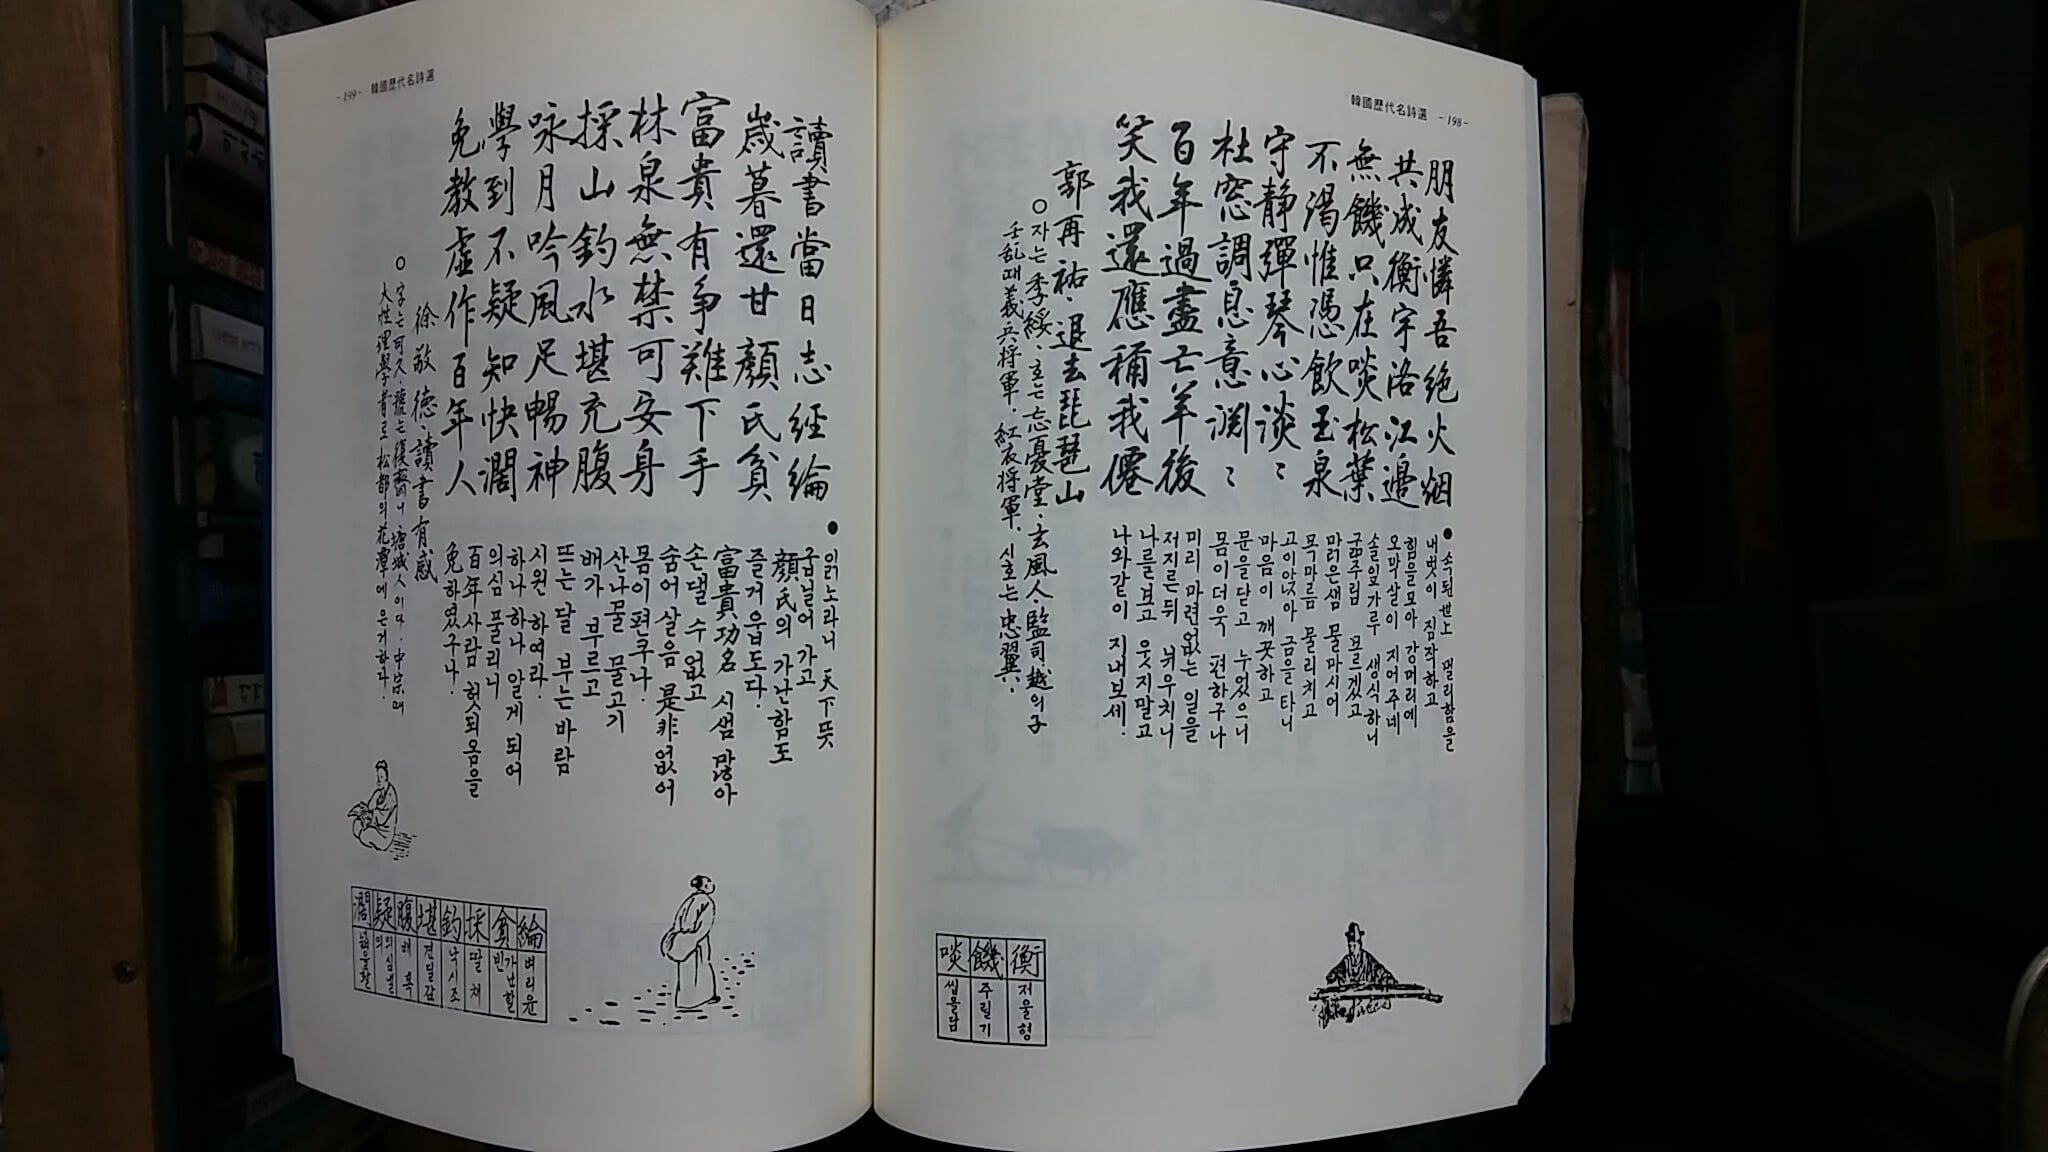 韓國歷代名詩選 -198-
朋友憐吾絶火烟
共成衡宇洛江邊
無饑只在啖松葉
不渴惟憑飮玉泉
守静彈琴心淡ミ
杜窓調息意渊ミ
百年過盡亡羊後
笑我還應稱我僊
郭再祐·退去琵琶山
○자는季綏、호는忘憂堂·玄風人·監司越의子
壬乱때義兵将軍、紅衣将軍、시호는忠翼、
● 속된世上 멀리함을
내벗이 짐작하고
힘을모아 강머리에
오막살이 지어주네
솔잎가루 생식하니
굶주림 모르겠고
맑은샘 물마시어
목마름 물리치고
고이앉아 금을타니
마음이 깨끗하고
문을닫고 누었으니
몸이더욱 편하구나
미리 마련없는 일을
저지른뒤 뉘우치니
나를보고 웃지말고
나와같이 지내보세.
衡 저울형
饑 주릴기
啖 씹을담
-199- 韓國歷代名詩選
讀書當日志經綸
歲暮還甘顏氏貧
富貴有爭難下手
林泉無禁可安身
採山釣水堪充腹
咏月吟風足暢神
學到不疑知快濶
免教虛作百年人
徐敬德·讀書有感
○ 字는可久·號는復齋니 塘城人이다. 中宗때
大性理學者로 松都의花潭에 은거하다.
● 읽노라니 天下뜻
굽널어 가고
顏氏의 가난함도
즐거웁도다.
富貴功名 시샘 많아
손댈 수 없고
숨어 살음 是非없어
몸이편쿠나.
산나물 물고기
배가 부르고
뜨는달 부는바람
시원 하여라.
하나 하나 알게 되어
의심 풀리니
百年사람 헛되옴을
免하였구나.
綸 벼리윤
貧 가난할빈
採 딸채
釣 낙시조
堪 견딜감
腹 배복
疑 의심낼의
濶 넓을활